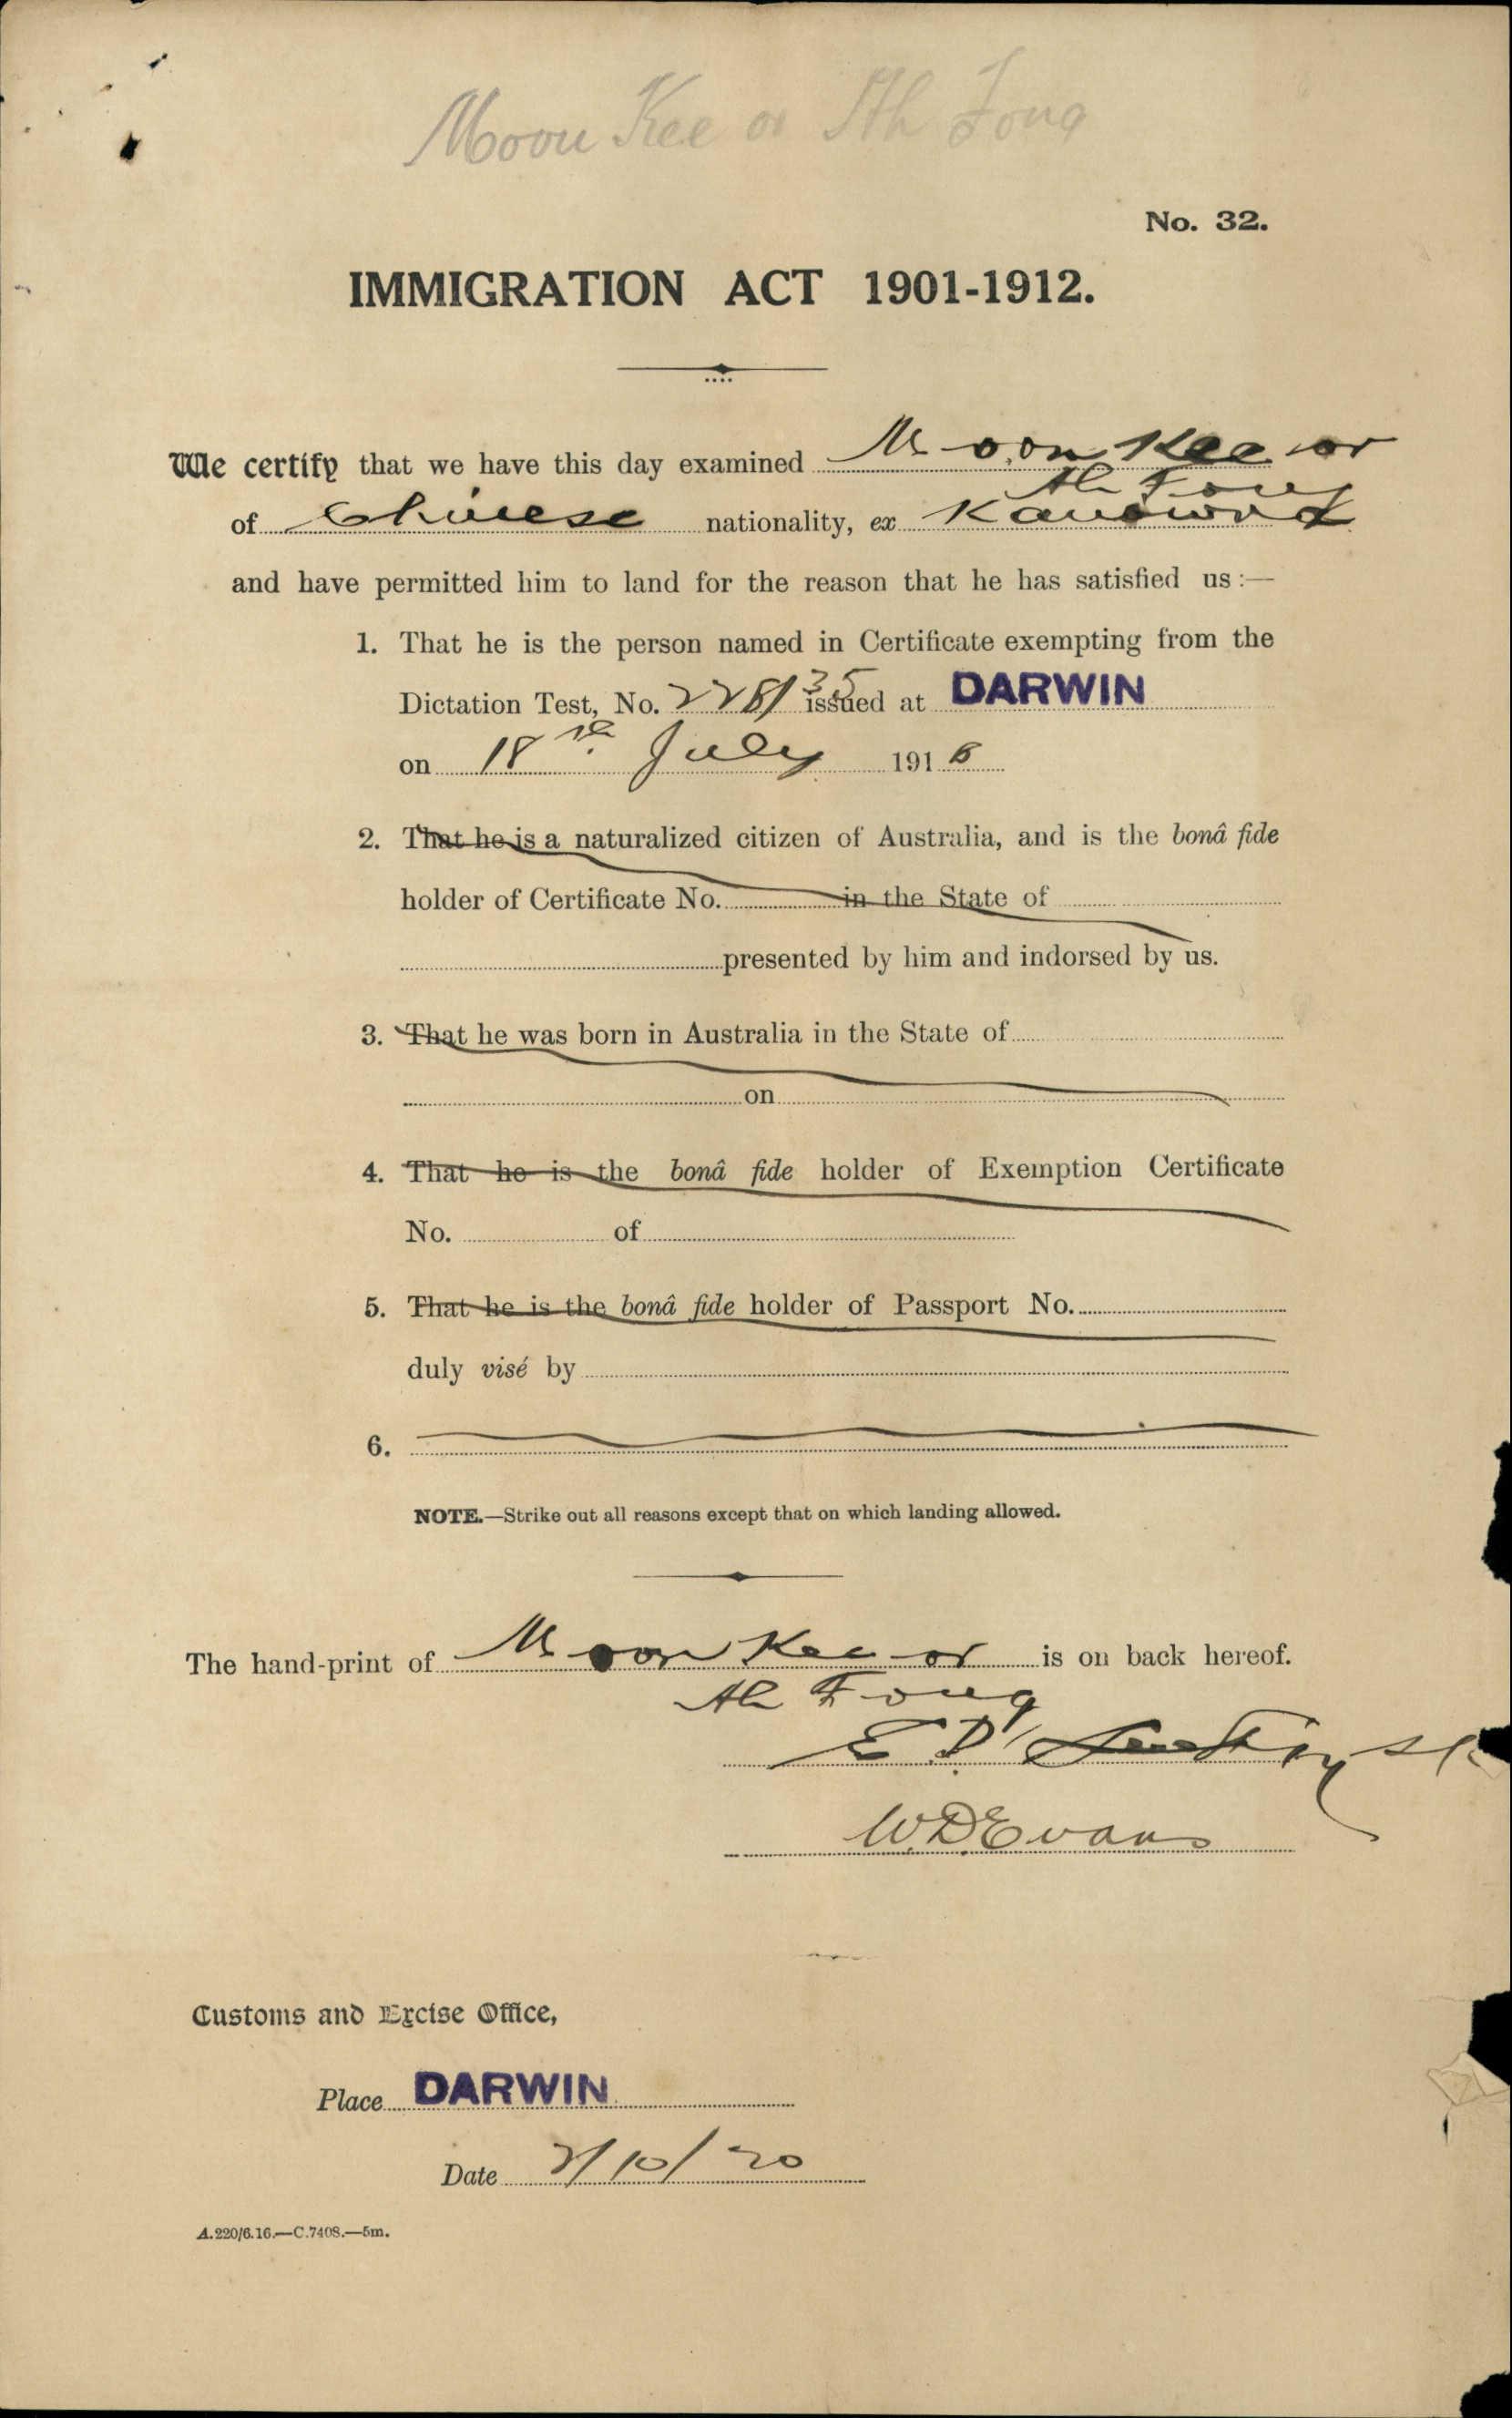 Moon Kee or Ah Fong
No. 32.
IMMIGRATION ACT 1901-1912.
We certify that we have this day examined Moon Kee or
Ah Fong
of Chinese nationality, ex Kanowna
and have permitted him to land for the reason that he has satisfied us:—
1. That he is the person named in Certificate exempting from the
Dictation Test, No. 228/35 issued at DARWIN
on 18th July 1916
2. That he is a naturalized citizen of Australia, and is the bonâ fide
holder of Certificate No. in the State of
presented by him and indorsed by us.
3. That he was born in Australia in the State of
on
4. That he is the bonâ fide holder of Exemption Certificate
No. of
5. That he is the bonâ fide holder of Passport No.
duly visé by
6.
NOTE.—Strike out all reasons except that on which landing allowed.
The hand-print of Moon Kee or is on back hereof.
Ah Fong
W.D. Evans
Customs and Excise Office,
Place DARWIN
Date 2/10/20
A.220/6.16.—C.7408.—5m.